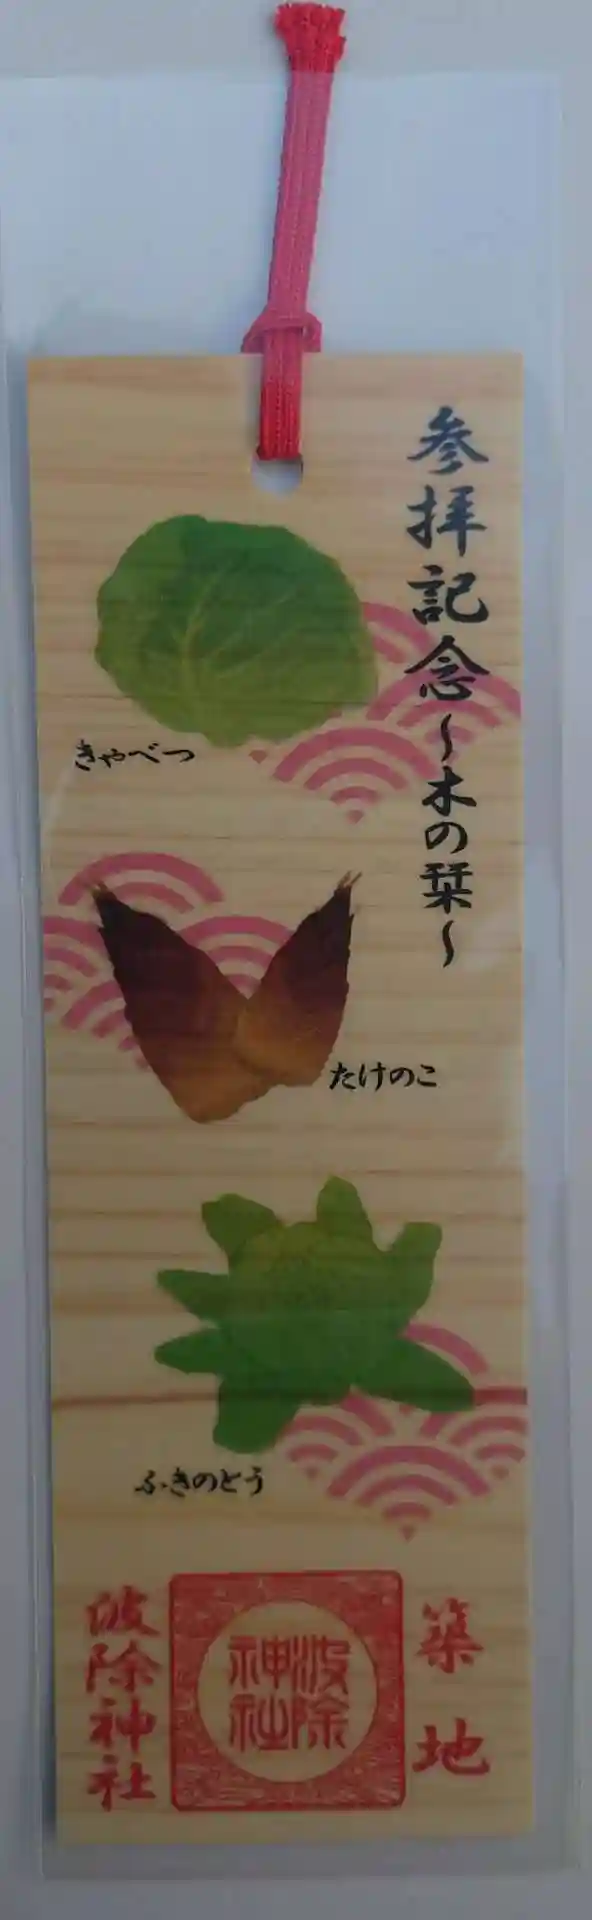 参拝記念～木の栞～
きゃべつ
たけのこ
ふきのとう
築地
波除神社
波除神社